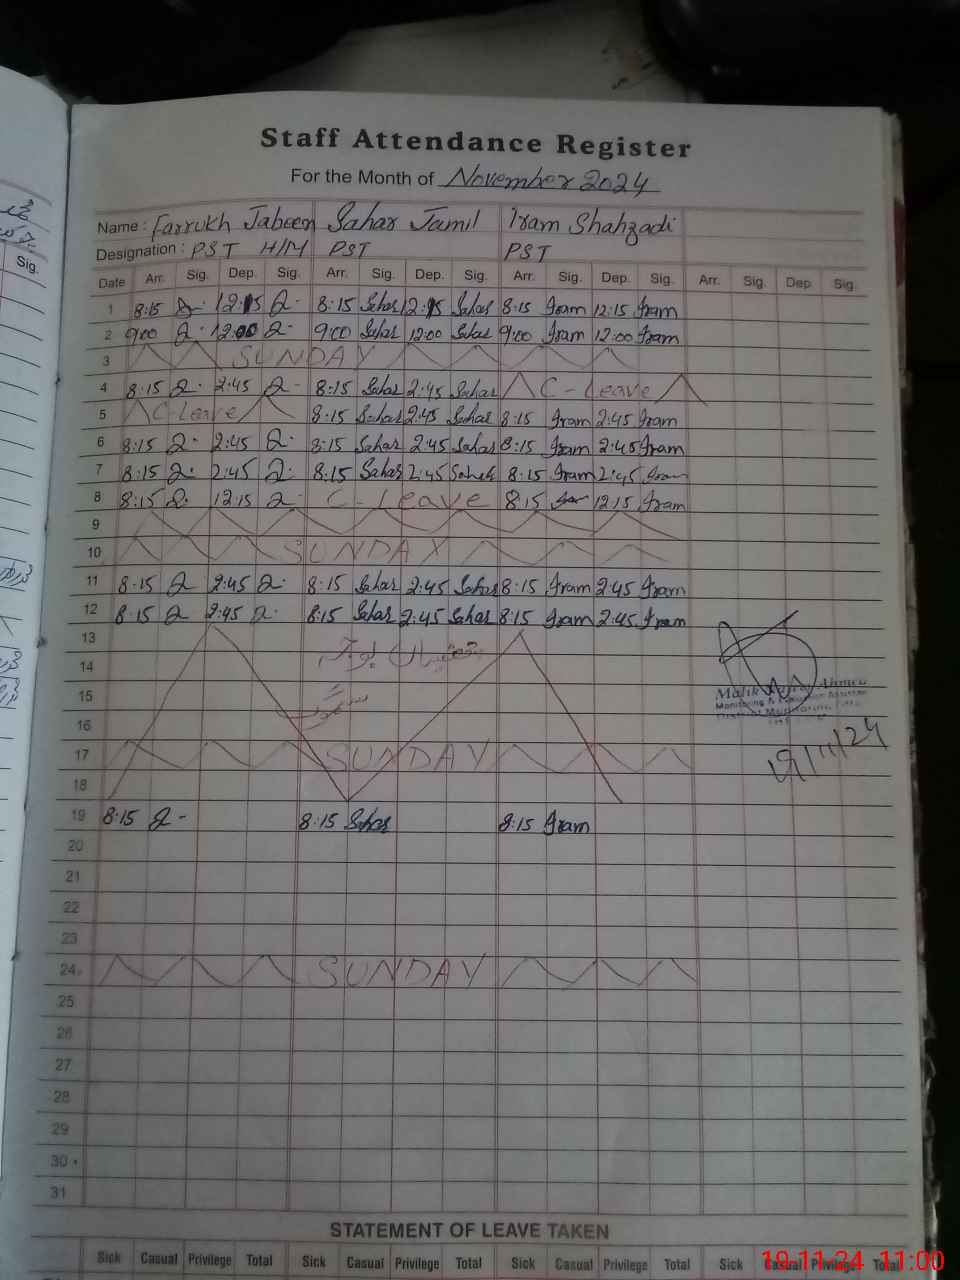 Staff Attendance Register
For the Month of November 2024
Name : Farrukh Jabeen Sahar Jamil Iram Shahzadi
Designation : PST H/M PST PST
Date Arr. Sig. Dep. Sig. Arr. Sig. Dep. Sig. Arr. Sig. Dep. Sig. Arr. Sig. Dep. Sig.
Sig.
1 8:15 12:15 8:15 Sahar 12:15 Sahar 8:15 Iram 12:15 Iram
2 9:00 12:00 9:00 Sahar 12:00 Sahar 9:00 Iram 12:00 Iram
3 SUNDAY
4 8:15 2:45 8:15 Sahar 2:45 Sahar C-Leave
5 C-Leave 8:15 Sahar 2:45 Sahar 8:15 Iram 2:45 Iram
6 8:15 2:45 8:15 Sahar 2:45 Sahar 8:15 Iram 2:45 Iram
7 8:15 2:45 8:15 Sahar 2:45 Sahar 8:15 Iram 2:45 Iram
8 8:15 12:15 C-Leave 8:15 12:15 Iram
9
10 SUNDAY
11 8:15 2:45 8:15 Sahar 2:45 Sahar 8:15 Iram 2:45 Iram
12 8:15 2:45 8:15 Sahar 2:45 Sahar 8:15 Iram 2:45 Iram
13
14
15
Malik Ahmed
Monitoring &
District Monitoring
16
19/11/24
17 SUNDAY
18
19 8:15 8:15 Sahar 8:15 Iram
20
21
22
23
24 SUNDAY
25
26
27
28
29
30
31
STATEMENT OF LEAVE TAKEN
Sick Casual Privilege Total Sick Casual Privilege Total Sick Casual Privilege Total Sick Casual Privilege Total
19-11-24 11:00